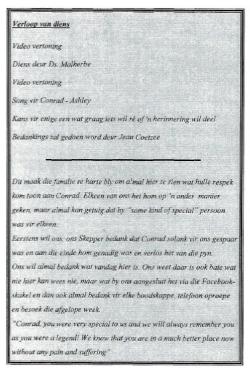 Verloop van diens
Video vertoning
Diens deur Ds. Malherbe
Video vertoning
Song vir Conrad - Ashley
Kans vir enige een wat graag iets wil sê of 'n herinnering wil deel
Bedankings sal gedoen word deur Jean Coetzee
Dit maak die familie se harte bly om almal hier te sien wat hulle respek
kom toon aan Conrad. Elkeen van ons het hom op 'n ander manier
geken, maar almal kan getuig dat hy "some kind of special" persoon
was vir elkeen.
Eerstens wil ons, ons Skepper bedank dat Conrad solank vir ons gespaar
was en aan die einde hom genadig was en verlos het van die pyn.
Ons wil almal bedank wat vandag hier is. Ons weet daar is ook baie wat
nie hier kan wees nie, maar wat by ons aangesluit het via die Facebook-
skakel en dan ook almal bedank vir elke boodskappe, telefoon oproepe
en besoek die afgelope week.
"Conrad, you were very special to us and we will always remember you
as you were a legend! We know that you are in a much better place now
without any pain and suffering"